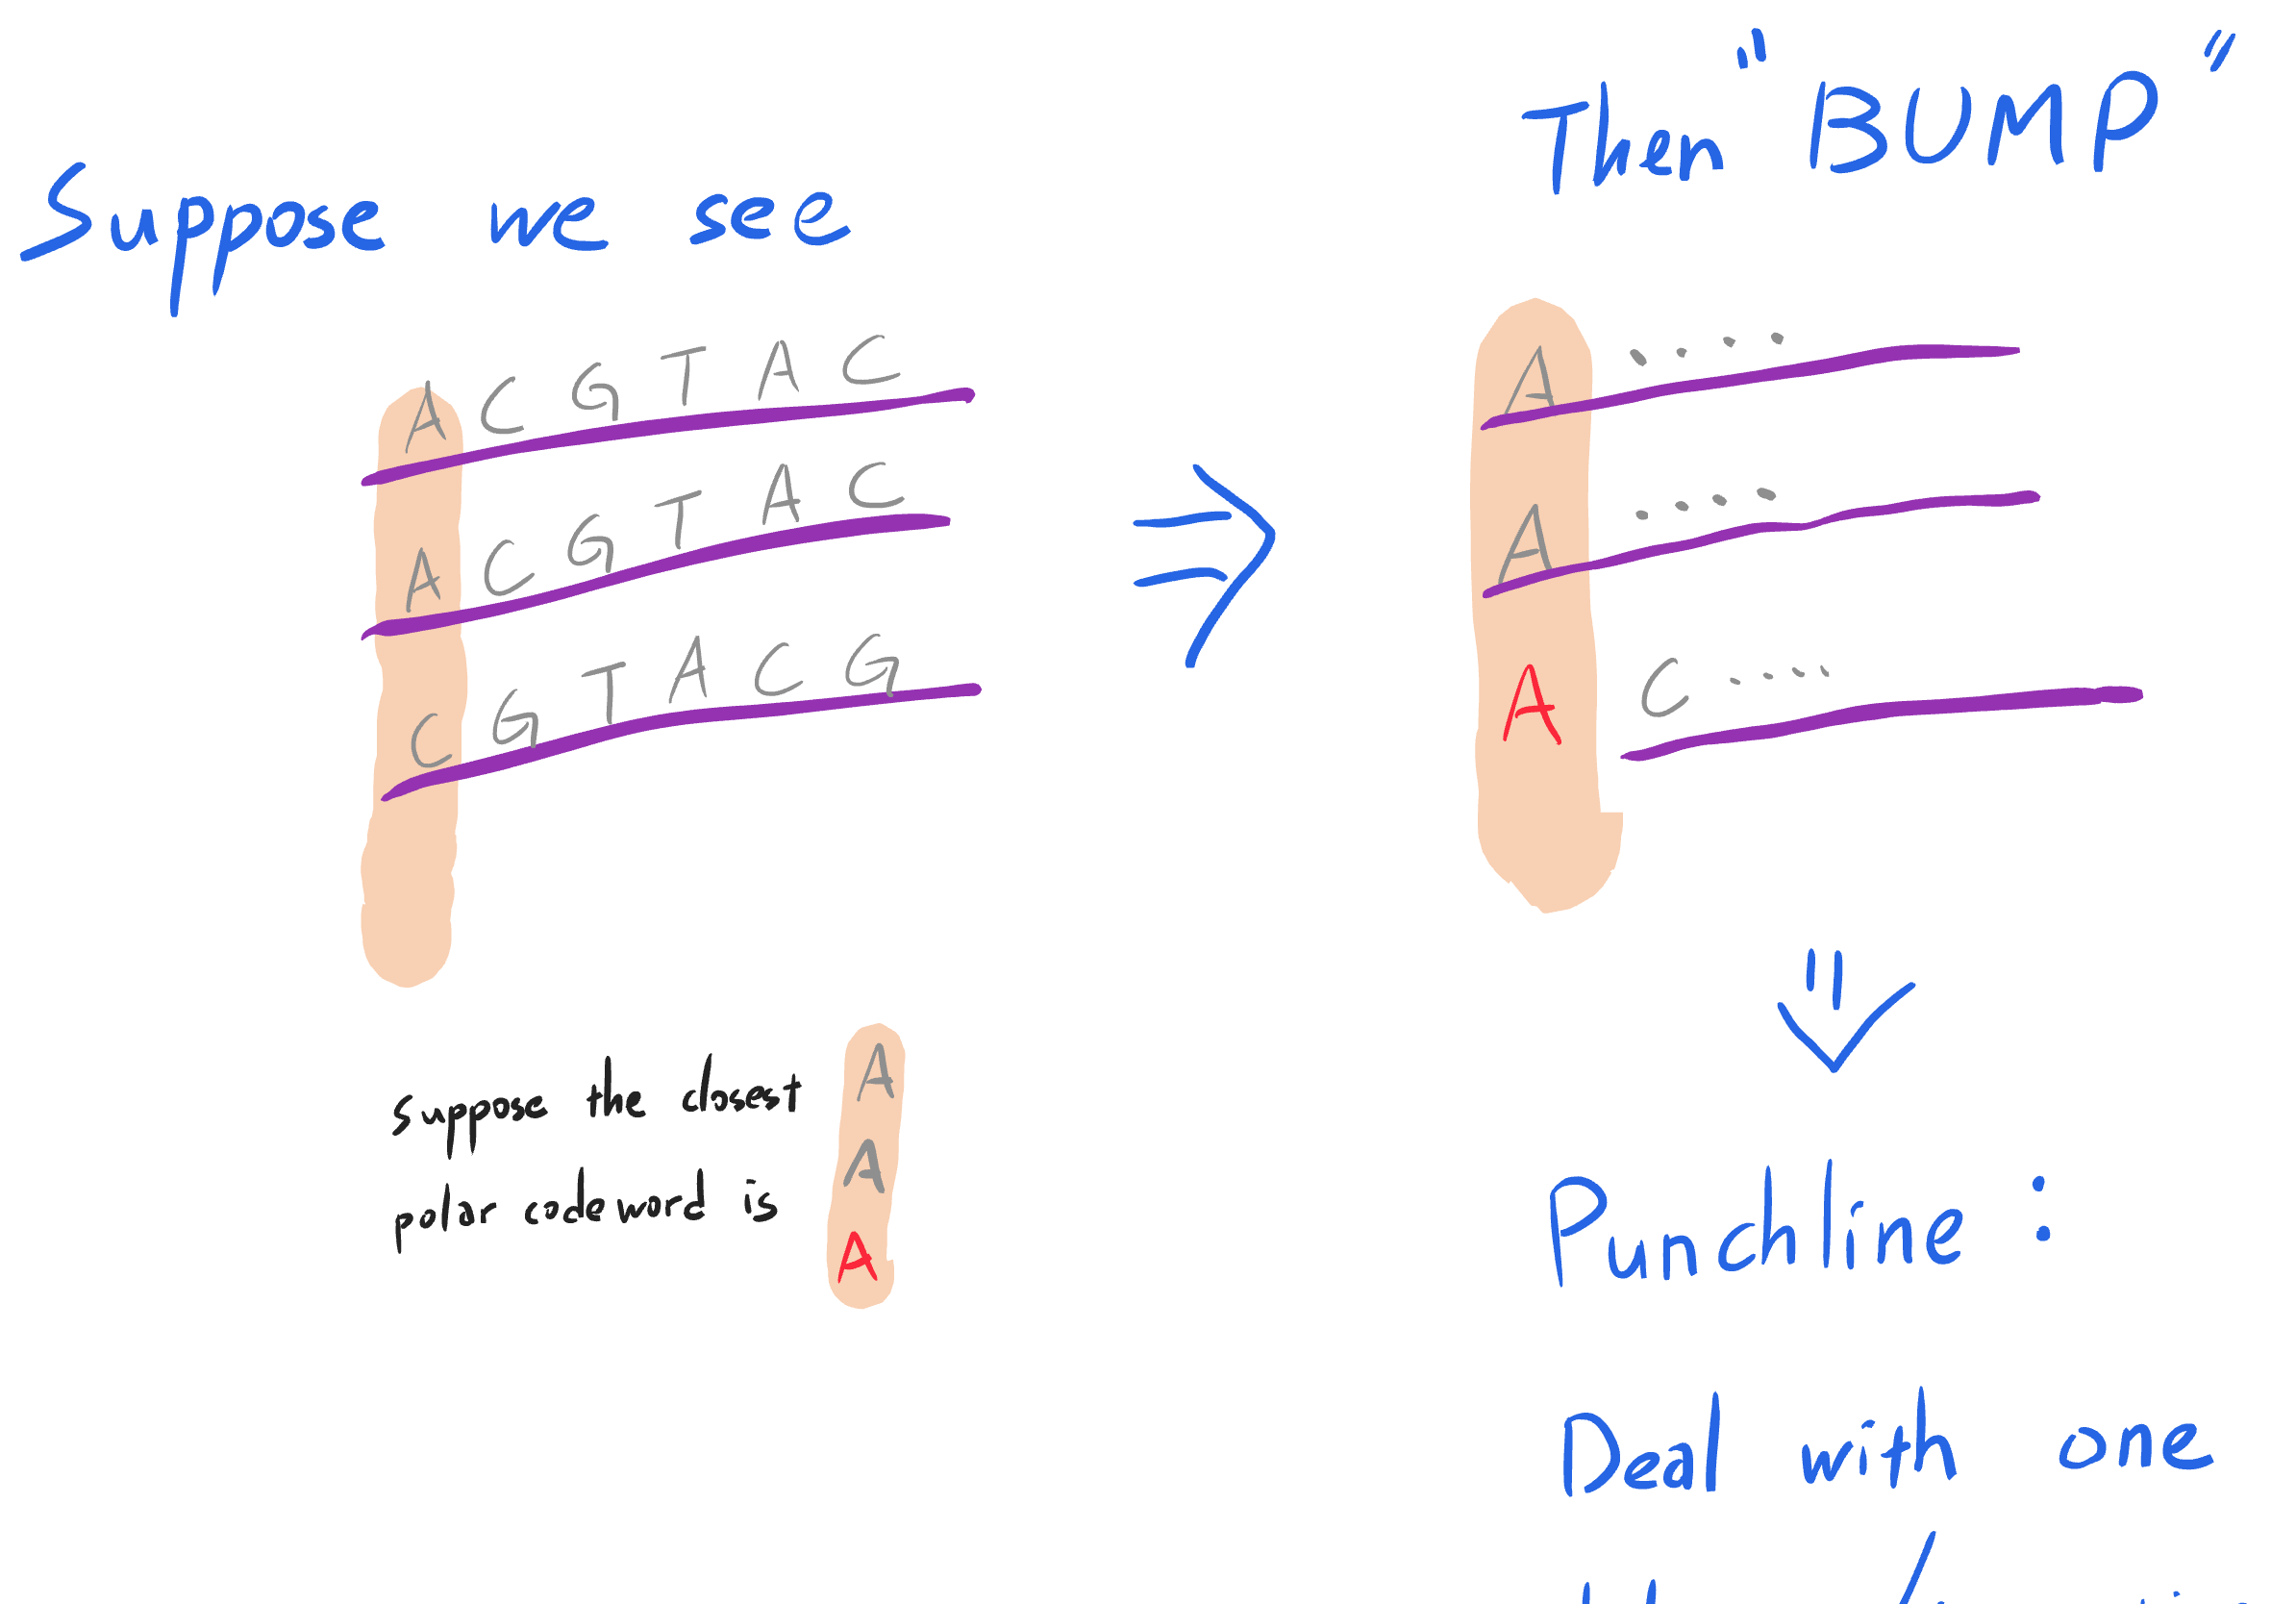 Suppose we see
A C G T A C
A C G T A C
C G T A C G
suppose the closest
polar codeword is
A
A
A
Then "BUMP"
A ....
A ....
A C ....
Punchline:
Deal with one